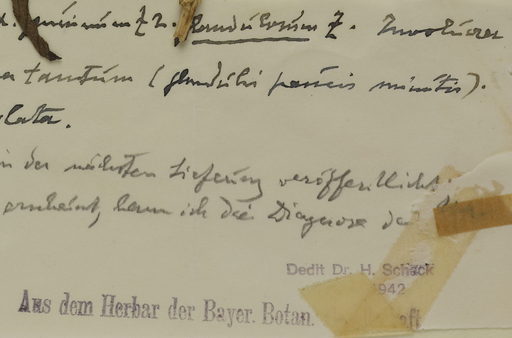 glandulosum Z. Involucra
tantum (glanduli paucis minutis).
lata.
in der nächsten Lieferung veröffentlicht
erscheint, kann ich die Diagnose
Dedit Dr. H. Schack
1942
Aus dem Herbar der Bayer. Botan.